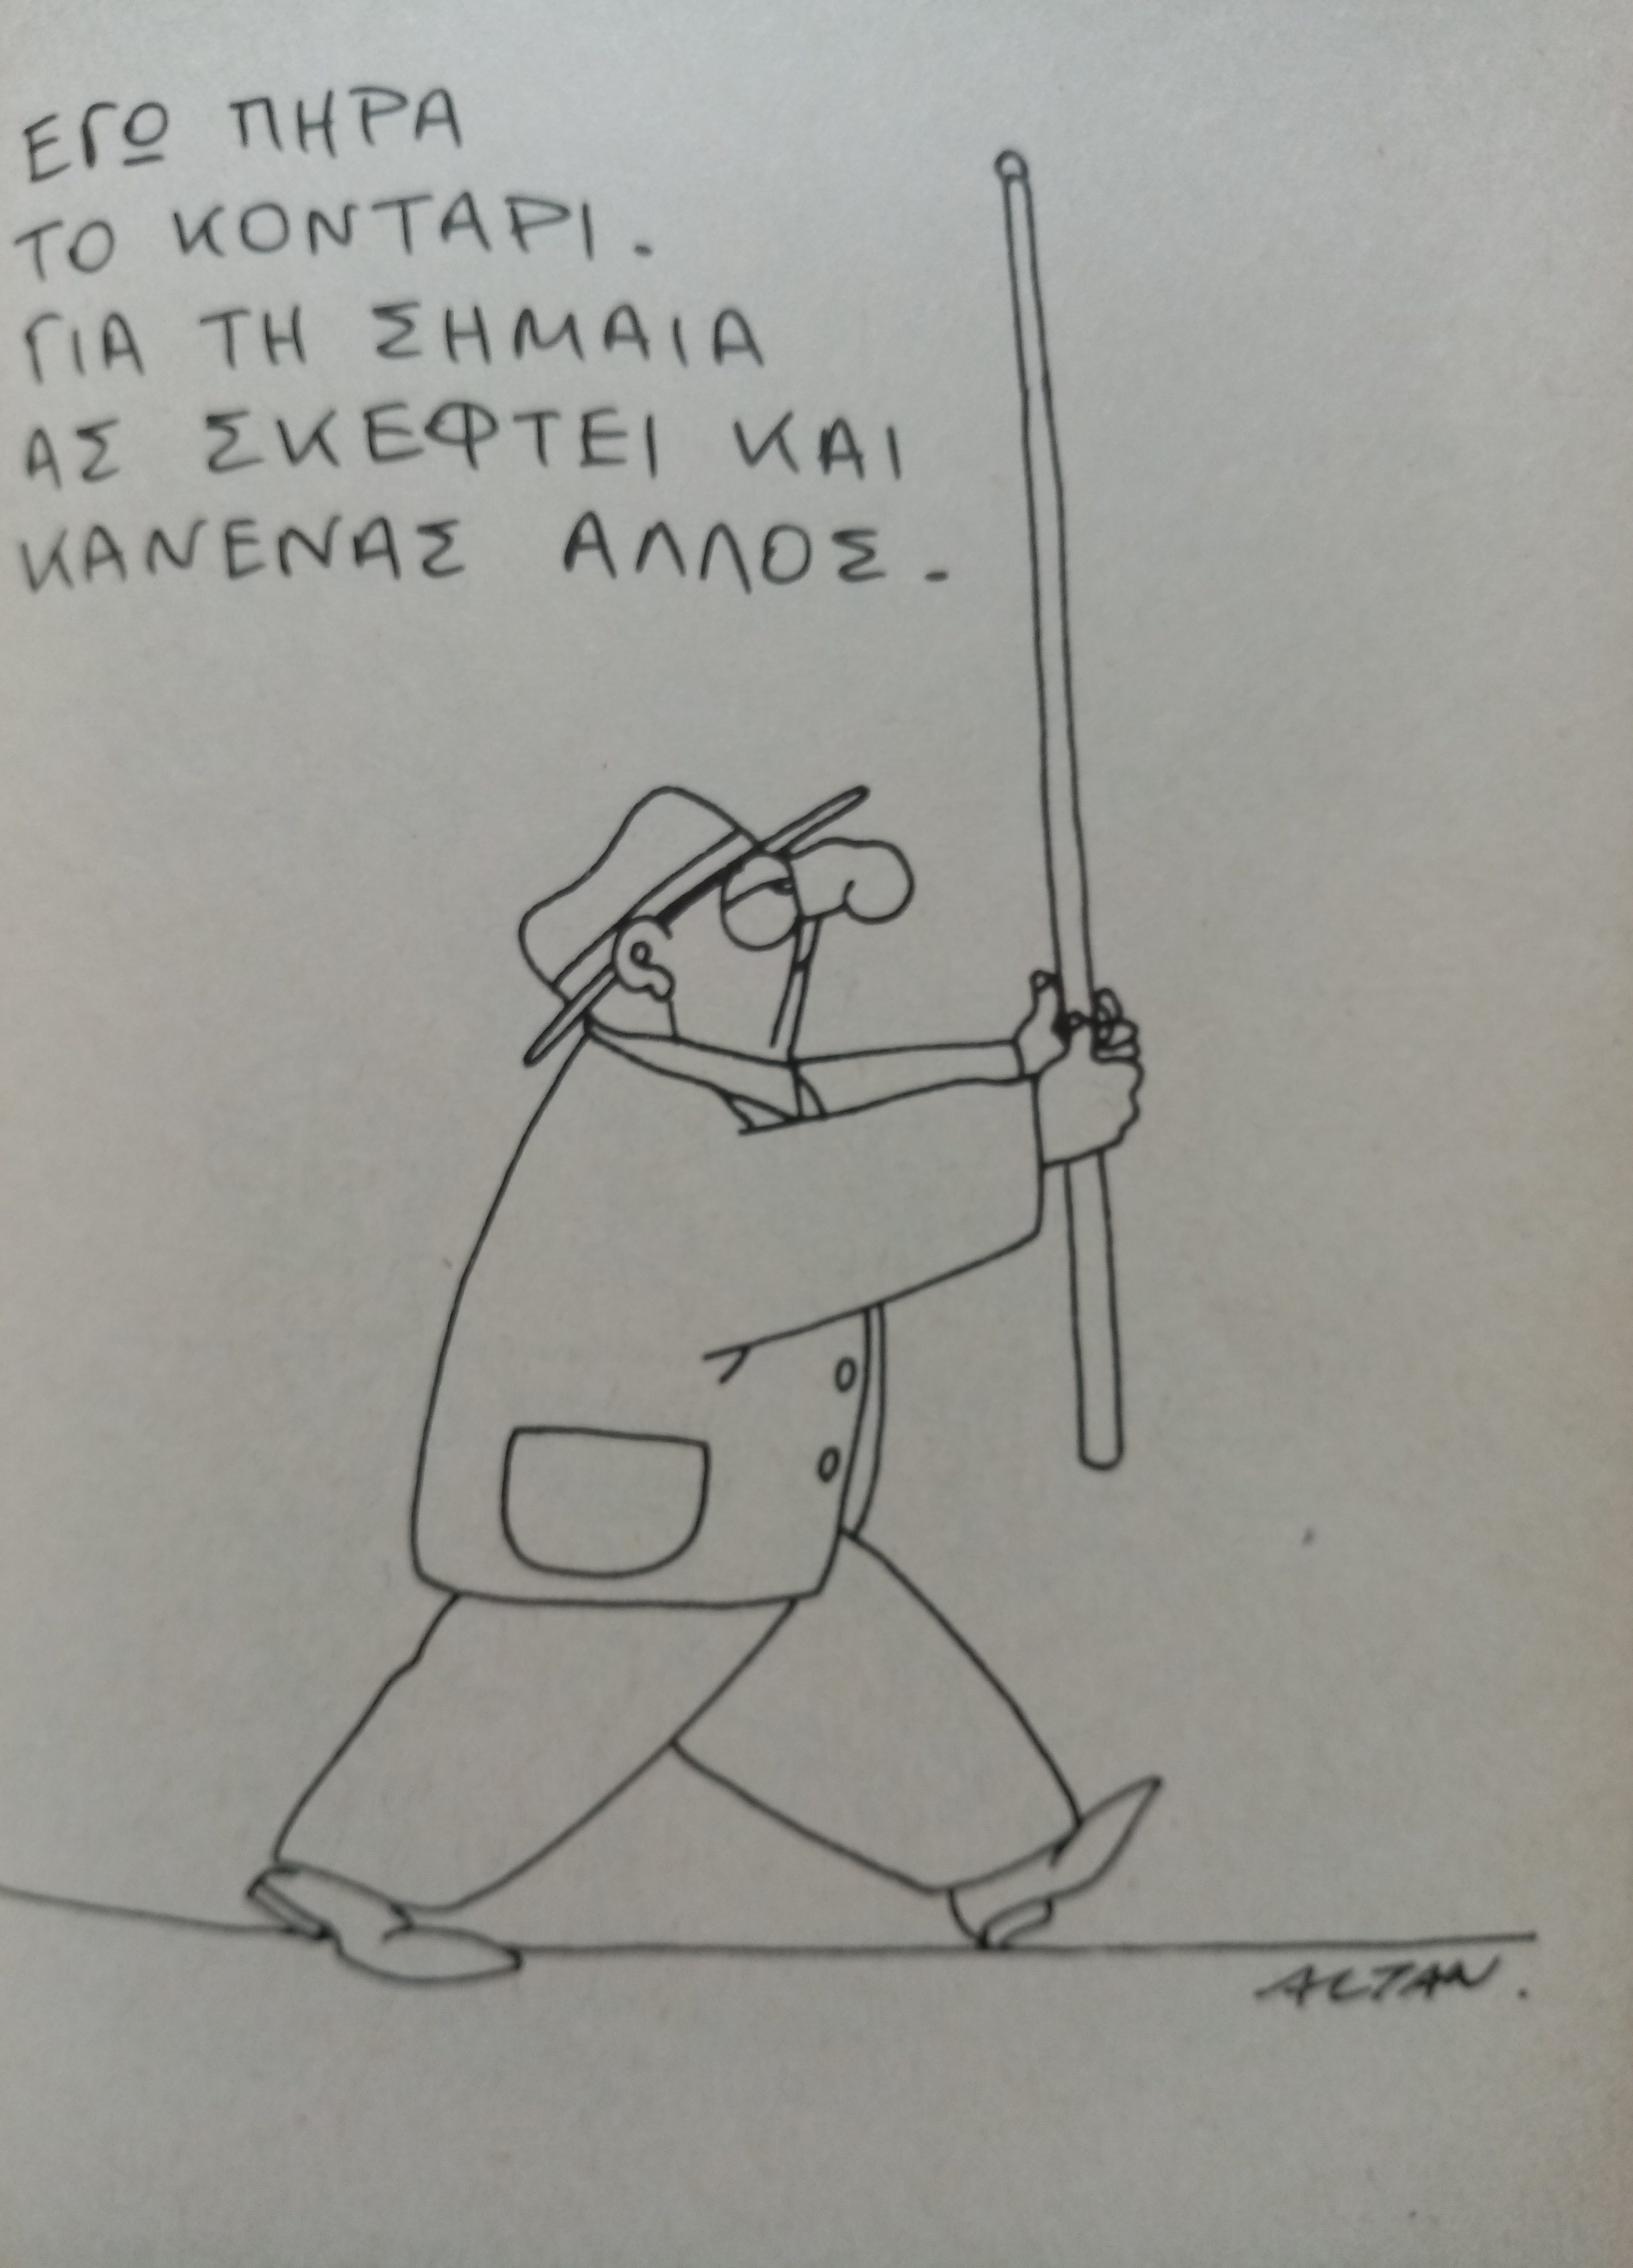 ΕΓΩ ΠΗΡΑ
ΤΟ ΚΟΝΤΑΡΙ.
ΓΙΑ ΤΗ ΣΗΜΑΙΑ
ΑΣ ΣΚΕΦΤΕΙ ΚΑΙ
ΚΑΝΕΝΑΣ ΑΛΛΟΣ.
ALTAN.